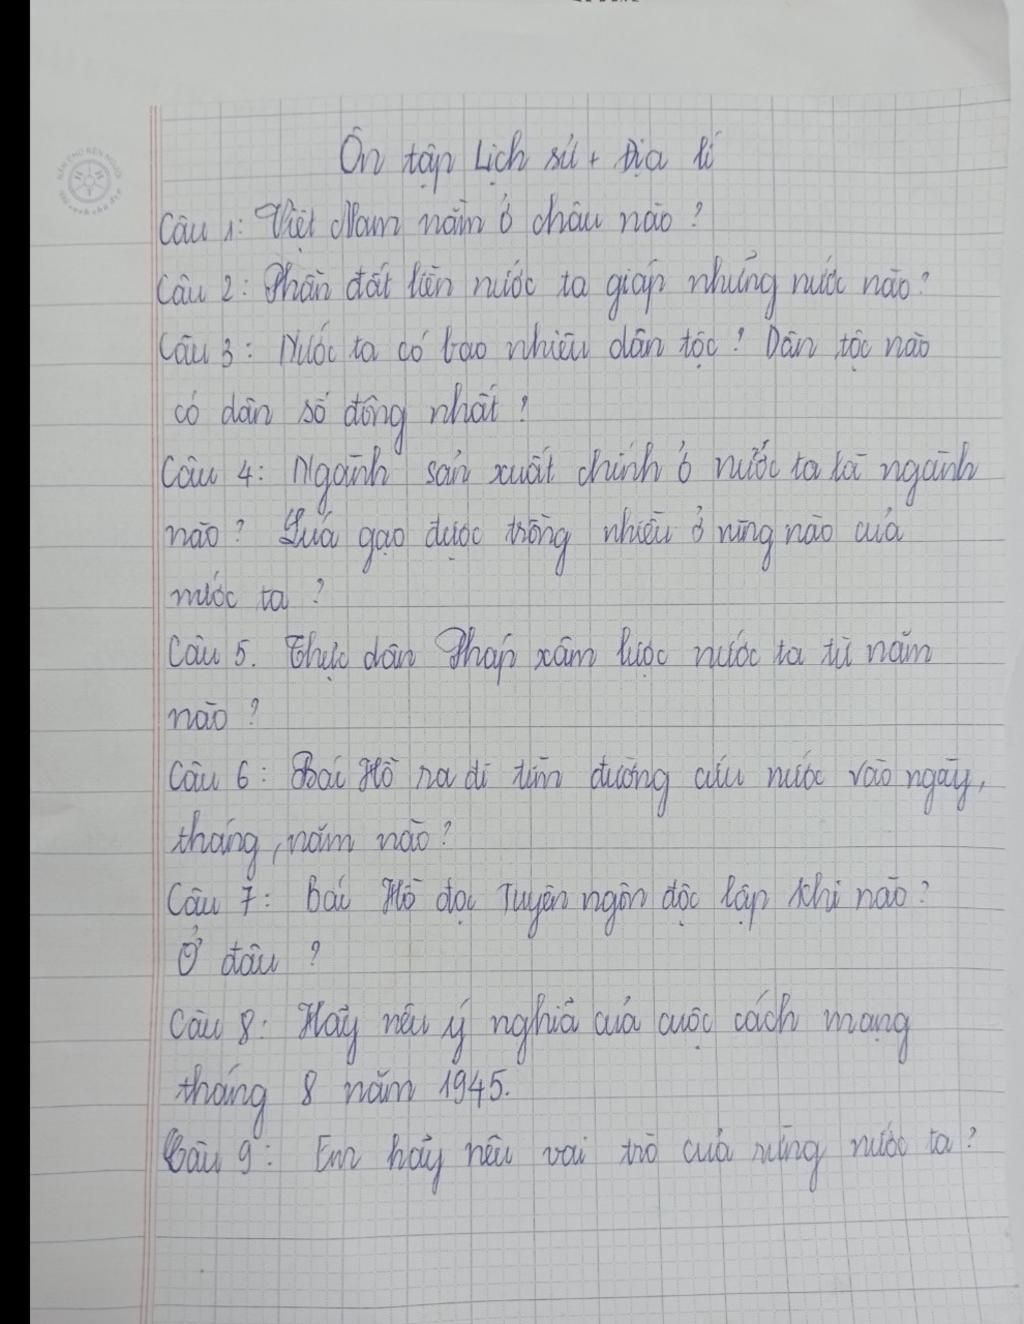 Ôn tập Lịch sử + Địa lí
Câu 1: Việt Nam nằm ở châu nào?
Câu 2: Phần đất liền nước ta giáp những nước nào?
Câu 3: Nước ta có bao nhiêu dân tộc? Dân tộc nào
có dân số đông nhất?
Câu 4: Ngành sản xuất chính ở nước ta là ngành
nào? Lúa gạo được trồng nhiều ở vùng nào của
nước ta?
Câu 5. Thực dân Pháp xâm lược nước ta từ năm
nào?
Câu 6: Bác Hồ ra đi tìm đường cứu nước vào ngày,
tháng, năm nào?
Câu 7: Bác Hồ đọc Tuyên ngôn độc lập khi nào?
Ở đâu?
Câu 8: Hãy nêu ý nghĩa của cuộc cách mạng
tháng 8 năm 1945.
Câu 9: Em hãy nêu vai trò của rừng nước ta?